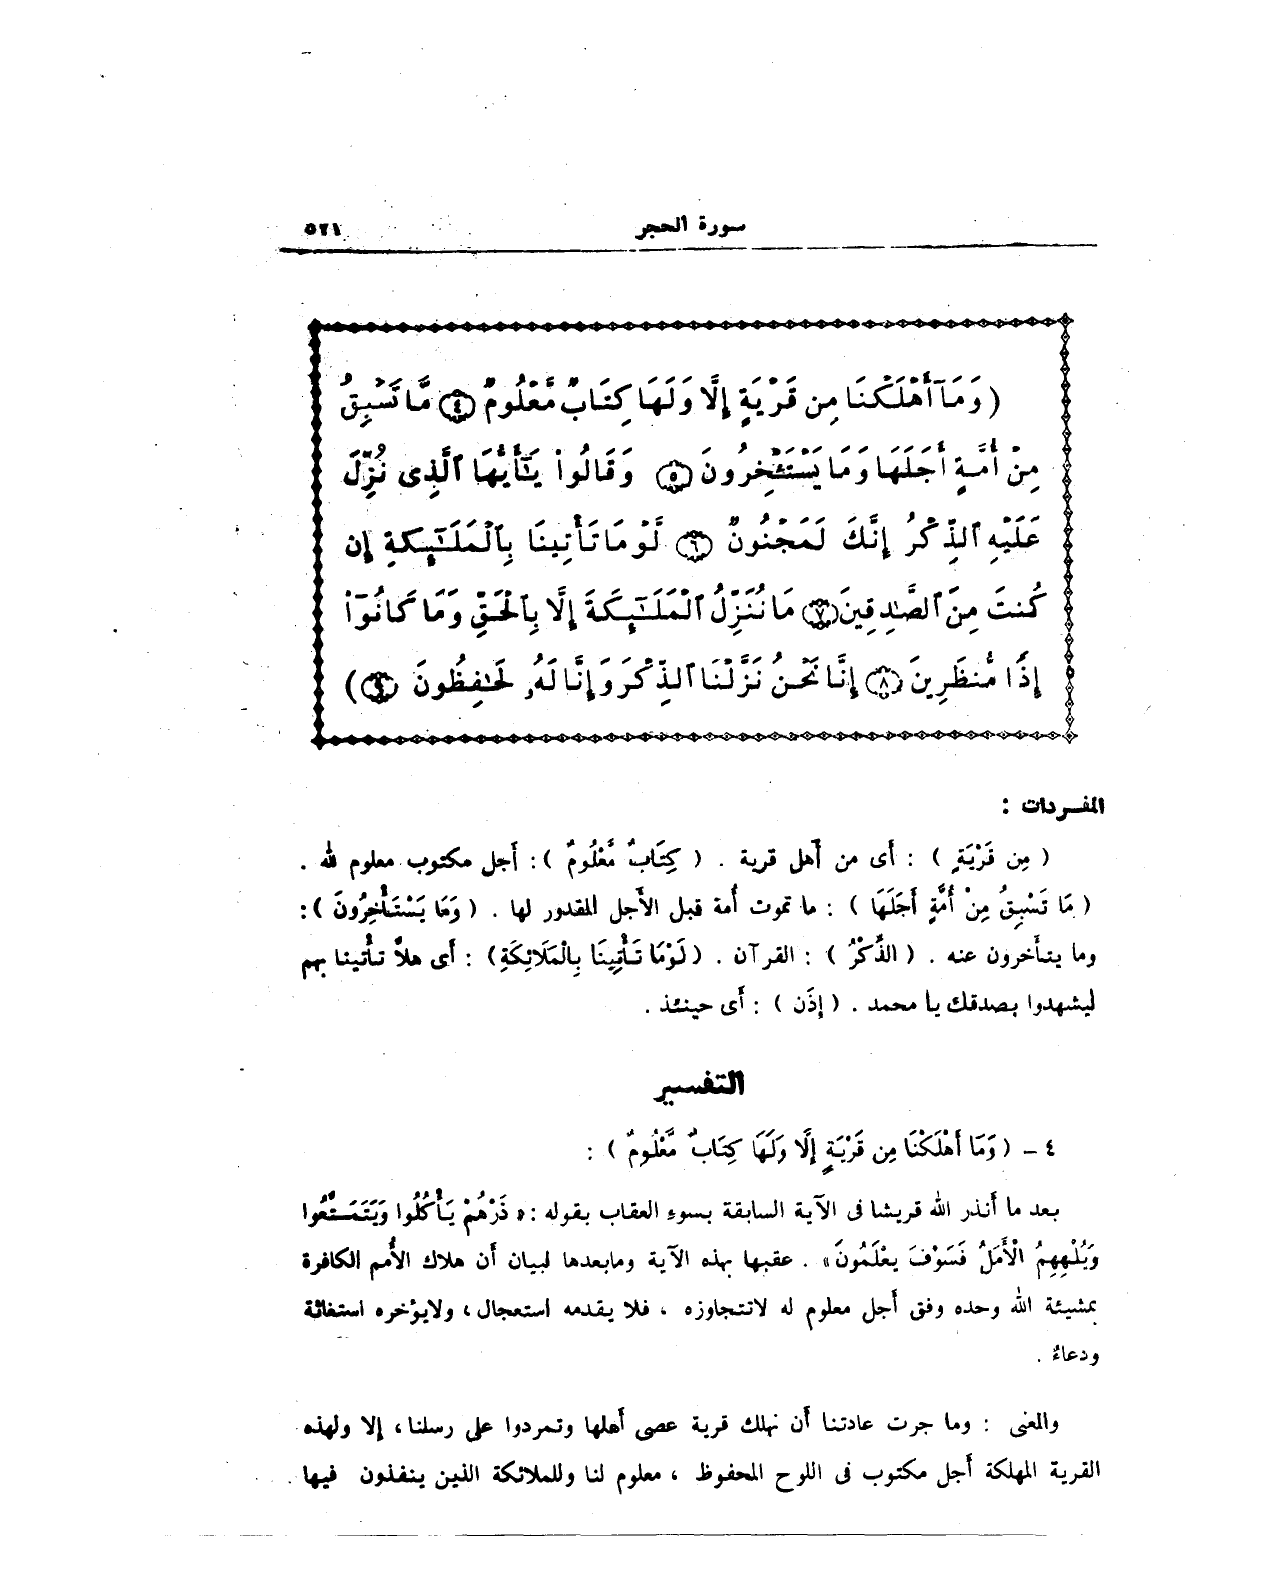 سورة الحجر ٥٢١
(وَمَآ أَهْلَكْنَا مِن قَرْيَةٍ إِلَّا وَلَهَا كِتَابٌ مَّعْلُومٌ ٤ مَّا تَسْبِقُ
مِنْ أُمَّةٍ أَجَلَهَا وَمَا يَسْتَـْٔخِرُونَ ٥ وَقَالُوا۟ يَـٰٓأَيُّهَا ٱلَّذِى نُزِّلَ
عَلَيْهِ ٱلذِّكْرُ إِنَّكَ لَمَجْنُونٌ ٦ لَّوْ مَا تَأْتِينَا بِٱلْمَلَـٰٓئِكَةِ إِن
كُنتَ مِنَ ٱلصَّـٰدِقِينَ ٧ مَا نُنَزِّلُ ٱلْمَلَـٰٓئِكَةَ إِلَّا بِٱلْحَقِّ وَمَا كَانُوٓا۟
إِذًا مُّنظَرِينَ ٨ إِنَّا نَحْنُ نَزَّلْنَا ٱلذِّكْرَ وَإِنَّا لَهُۥ لَحَـٰفِظُونَ ٩)
المفـردات :
( مِن قَرْيَةٍ ) : أَى من أَهل قرية . ( كِتَابٌ مَّعْلُومٌ ) : أَجل مكتوب معلوم لله .
( مَا تَسْبِقُ مِنْ أُمَّةٍ أَجَلَهَا ) : ما تموت أُمة قبل الأَجل المقدور لها . ( وَمَا يَسْتَأْخِرُونَ ) :
وما يتأَخرون عنه . ( الذِّكْرُ ) : القرآن . ( لَوْمَا تَأْتِينَا بِالْمَلَائِكَةِ ) : أَى هلاَّ تأْتينا بهم
ليشهدوا بصدقك يا محمد . ( إِذَن ) : أَى حينئذ .
التفسير
٤ - ( وَمَا أَهْلَكْنَا مِن قَرْيَةٍ إِلَّا وَلَهَا كِتَابٌ مَّعْلُومٌ ) :
بعد ما أَنذر الله قريشا فى الآية السابقة بسوءِ العقاب بقوله : « ذَرْهُمْ يَأْكُلُوا وَيَتَمَتَّعُوا
وَيُلْهِهِمُ الْأَمَلُ فَسَوْفَ يَعْلَمُونَ» . عقبها بهذه الآية ومابعدها لبيان أَن هلاك الأُمم الكافرة
بمشيئة الله وحده وفق أَجل معلوم له لاتتجاوزه ، فلا يقدمه استعجال ، ولايؤخره استغاثة
ودعاءٌ .
والمعنى : وما جرت عادتنا أَن نهلك قرية عصى أَهلها وتمردوا على رسلنا ، إلا ولهذه
القرية المهلكة أَجل مكتوب فى اللوح المحفوظ ، معلوم لنا وللملائكة الذين ينفذون فيها